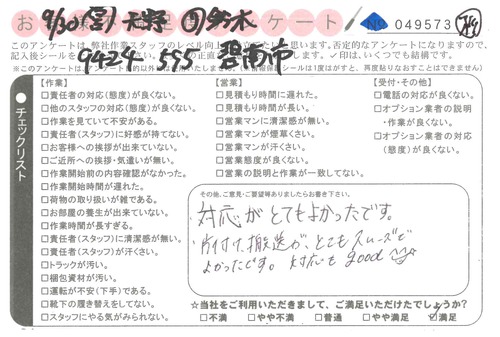 9/30(営)天野 (作)鈴木
お客様満足度アンケート
No 049573
このアンケートは、弊社作業スタッフのレベル向上
思います。否定的なアンケートになりますので、
記入後シールを
✓印は、いくつでも結構です。
9424 554 碧南市
チェックリスト
【作業】
□責任者の対応(態度)が良くない。
□他のスタッフの対応(態度)が良くない。
□作業を見ていて不安がある。
□責任者(スタッフ)に好感が持てない。
□お客様への挨拶が出来ていない。
□ご近所への挨拶・気遣いが無い。
□作業開始前の内容確認がなかった。
□作業開始時間が遅れた。
□荷物の取り扱いが雑である。
□お部屋の養生が出来ていない。
□作業時間が長すぎる。
□責任者(スタッフ)に清潔感が無い。
□責任者(スタッフ)が汗くさい。
□トラックが汚い。
□梱包資材が汚い。
□運転が不安(下手)である。
□靴下の履き替えをしてない。
□スタッフにやる気がみられない。
【営業】
□見積もり時間に遅れた。
□見積もり時間が長い。
□営業マンに清潔感が無い。
□営業マンが煙草くさい。
□営業マンが汗くさい。
□営業態度が良くない。
□営業の説明と作業が一致してない。
【受付・その他】
□電話の対応が良くない。
□オプション業者の説明
・作業が良くない。
□オプション業者の対応
(態度)が良くない。
その他、ご意見・ご要望等ありましたらお書き下さい。
対応がとてもよかったです。
片付け、搬送が、とてもスムーズで
よかったです。対応も good
☆当社をご利用いただきまして、ご満足いただけたでしょうか?
□不満 □やや不満 □普通 □やや満足 ☑満足